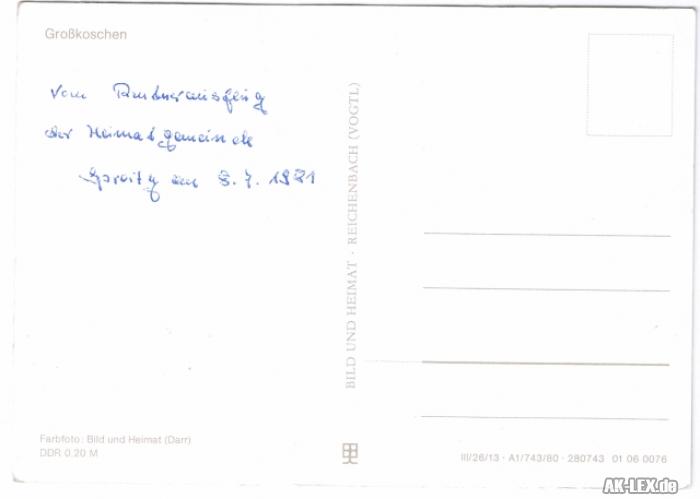 Großkoschen
vom Rentnerausflug
der Heimatgemeinde
Spreitz am 8.7.1981
BILD UND HEIMAT · REICHENBACH (VOGTL)
Farbfoto: Bild und Heimat (Darr)
DDR 0,20 M
III/26/13 · A1/743/80 · 280743 01 06 0076
AK-LEX.de